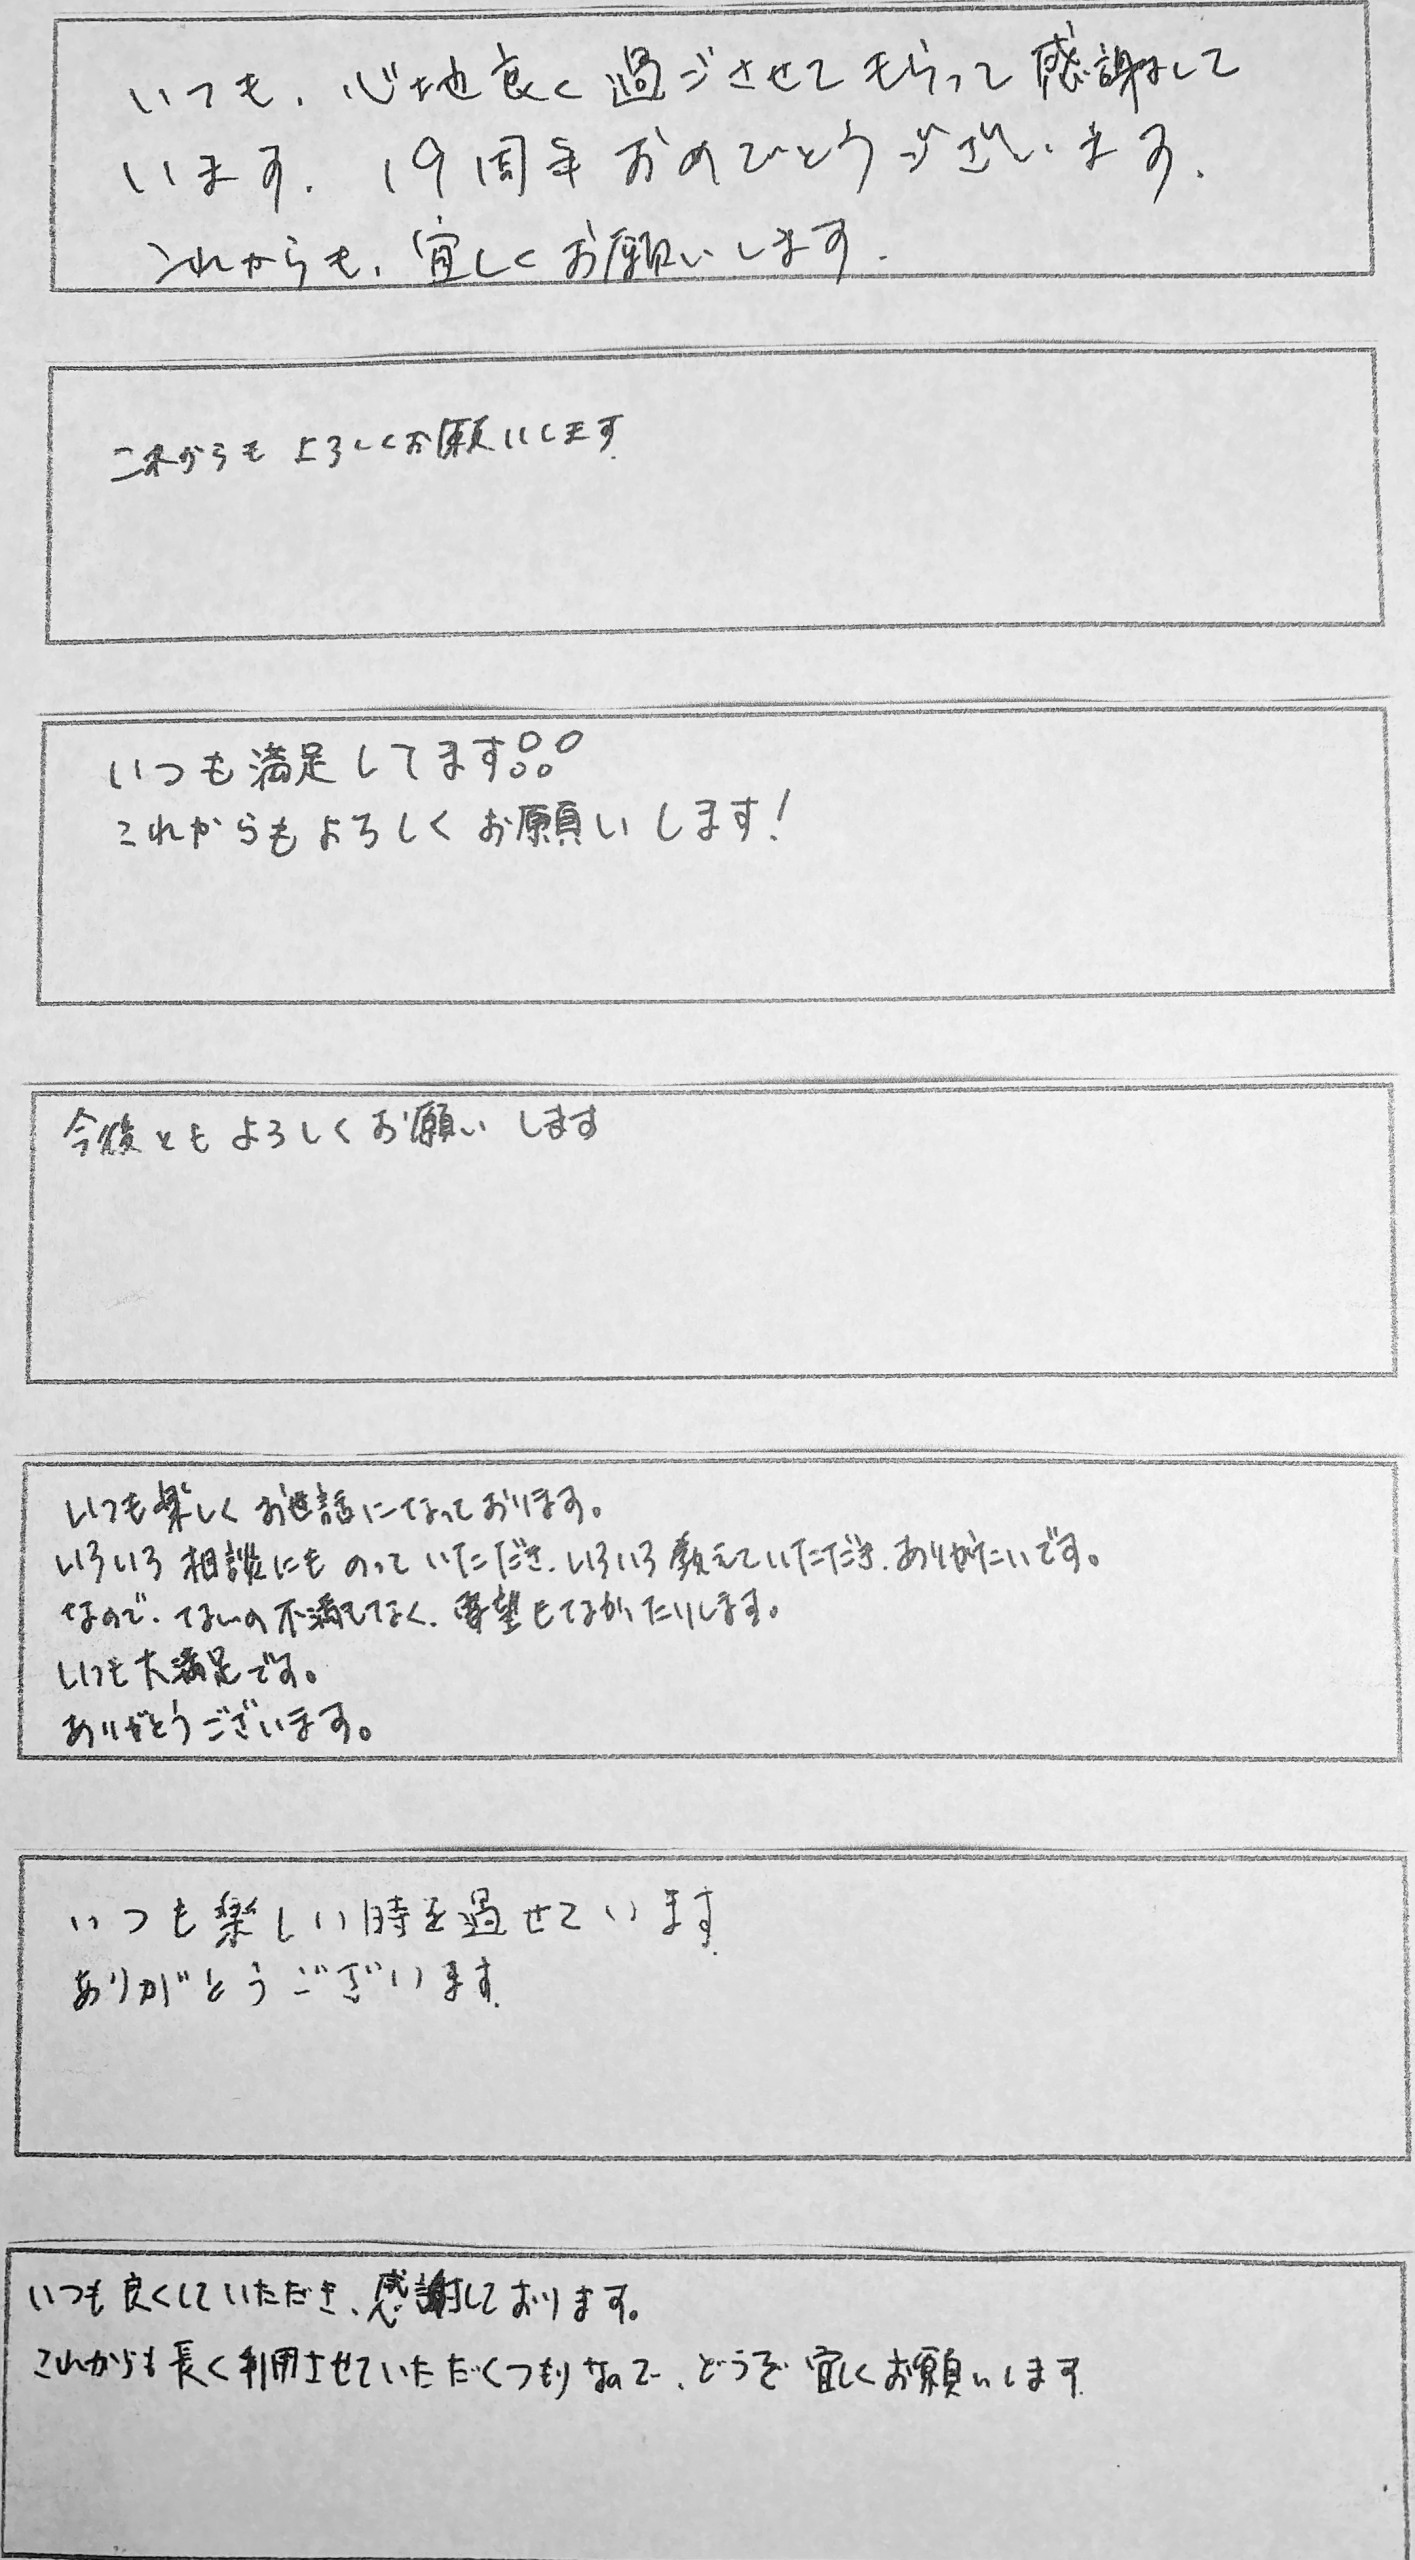 いつも、心地良く過ごさせてもらって感謝して
います. 19周年おめでとうございます.
これからも、宜しくお願いします.
これからもよろしくお願いします.
いつも満足してます
これからもよろしくお願いします!
今後ともよろしくお願いします
いつも楽しくお世話になっております。
いろいろ相談にものっていただき、いろいろ教えていただき、ありがたいです。
なので、 不満もなく、要望もなかったりします。
いつも大満足です。
ありがとうございます。
いつも楽しい時を過せています.
ありがとうございます.
いつも良くしていただき、感謝しております。
これからも長く利用させていただくつもりなので、どうぞ宜しくお願いします.